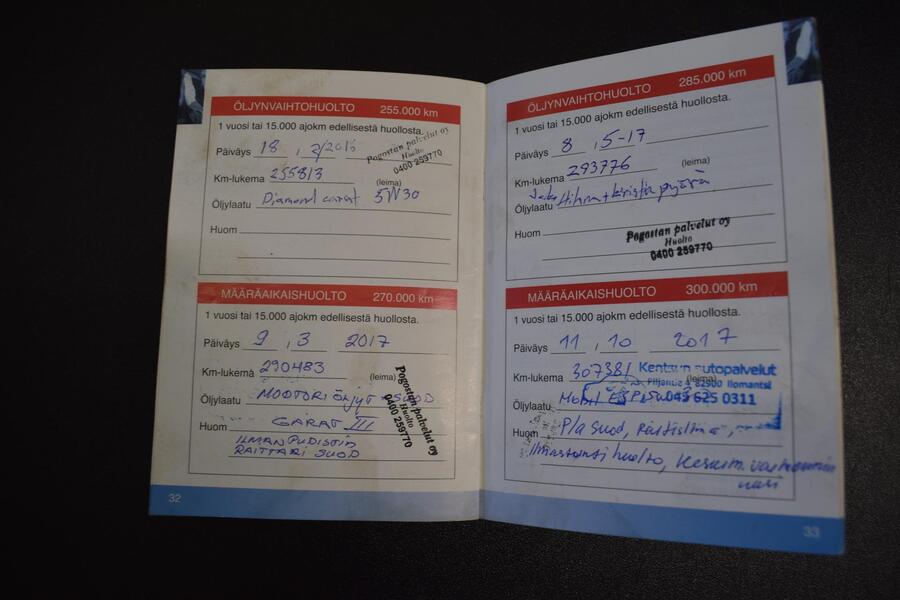 ÖLJYNVAIHTOHUOLTO 255.000 km
1 vuosi tai 15.000 ajokm edellisestä huollosta.
Päiväys 18 . 2/2016
Pogostan palvelut oy
Huolto
0400 259770
Km-lukema 255813 (leima)
Öljylaatu Diamond carat 5W30
Huom
MÄÄRÄAIKAISHUOLTO 270.000 km
1 vuosi tai 15.000 ajokm edellisestä huollosta.
Päiväys 9 . 3 2017
Km-lukema 290483 (leima)
Öljylaatu MOOTTORIÖLJYT + SUOD
Huom GARAT III
ILMANPUDISTIN
RAITTARI SUOD
Pogostan palvelut oy
Huolto
0400 259770
32
ÖLJYNVAIHTOHUOLTO 285.000 km
1 vuosi tai 15.000 ajokm edellisestä huollosta.
Päiväys 8 . 5-17
Km-lukema 293776 (leima)
Öljylaatu Hihna + kiristin pyörä
Huom
Pogostan palvelut oy
Huolto
0400 259770
MÄÄRÄAIKAISHUOLTO 300.000 km
1 vuosi tai 15.000 ajokm edellisestä huollosta.
Päiväys 11 . 10 2017
Km-lukema 307381 (leima)
82900 Ilomantsi
045 625 0311
Öljylaatu Mobil ESP
Huom P/a suod, Raitisilma,
Ilmastointi huolto,
33